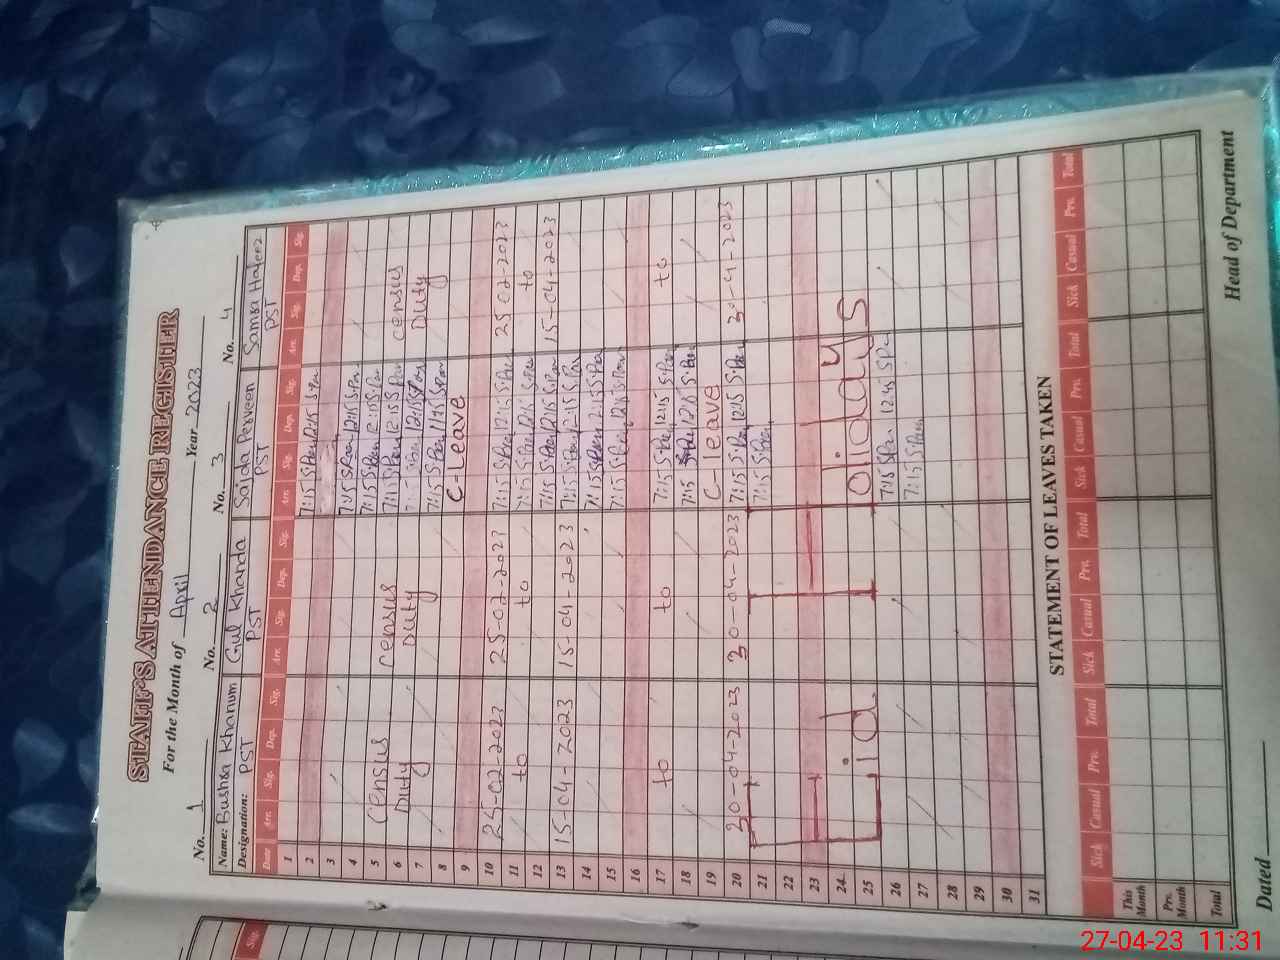 STAFF'S ATTENDANCE REGISTER
For the Month of April Year 2023
No. 1 No. 2 No. 3 No. 4
Name: Bushra Khanum Gul Khanda Sajda Perveen Samra Hafeez
Designation: PST PST PST PST
Date Arr. Sig. Dep. Sig. Arr. Sig. Dep. Sig. Arr. Sig. Dep. Sig. Arr. Sig. Dep. Sig.
1
2 7:15 12:15
3
4 7:15 12:15
5 census census 7:15 12:15 census
6 Duty Duty 7:15 12:15 Duty
7 12:15
8 7:15 11:15
9 C-Leave
10 25-02-2023 25-02-2023 7:15 12:15 25-02-2023
11 to to 7:15 12:15 to
12 7:15 12:15
13 15-04-2023 15-04-2023 7:15 12:15 15-04-2023
14 7:15 12:15
15 7:15 12:15
16
17 to to 7:15 12:15 to
18 7:15 12:15
19 C-leave
20 30-04-2023 30-04-2023 7:15 12:15 30-04-2023
21 7:15
22
23
24 Eid Holidays
25
26 7:15 12:15
27 7:15
28
29
30
31
STATEMENT OF LEAVES TAKEN
Sick Casual Prv. Total Sick Casual Prv. Total Sick Casual Prv. Total Sick Casual Prv. Total
This Month
Prv. Month
Total
Dated Head of Department
Sig.
27-04-23 11:31